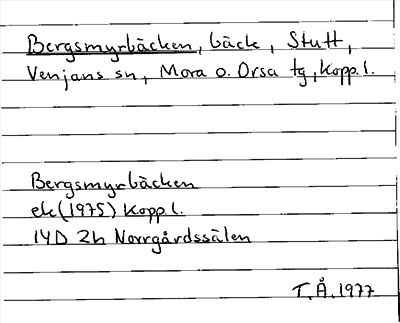 Bergsmyrbäcken, bäck, Stutt,
Venjans sn, Mora o. Orsa tg, Kopp. l.
Bergsmyrbäcken
ek (1975) Kopp. l.
14D 2h Norrgårdssälen
T.Å. 1977